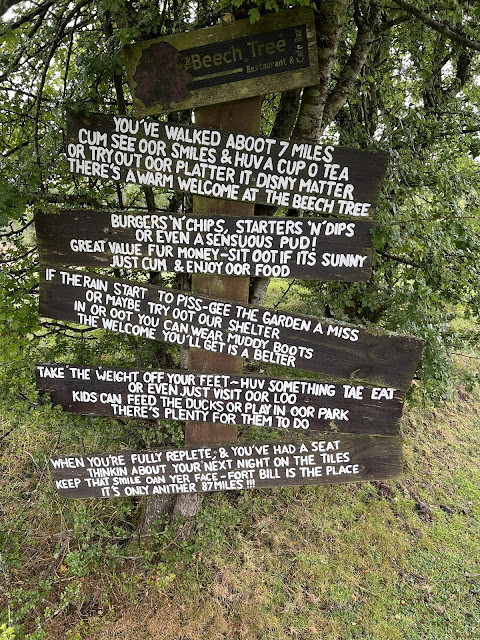 Beech Tree
Restaurant & Cafe Bar
YOU'VE WALKED ABOOT 7 MILES
CUM SEE OOR SMILES & HUV A CUP O TEA
OR TRY OUT OOR PLATTER IT DISNY MATTER
THERE'S A WARM WELCOME AT THE BEECH TREE
BURGERS 'N' CHIPS, STARTERS 'N' DIPS
OR EVEN A SENSUOUS PUD!
GREAT VALUE FUR MONEY~SIT OOT IF ITS SUNNY
JUST CUM & ENJOY OOR FOOD
IF THE RAIN START TO PISS~GEE THE GARDEN A MISS
OR MAYBE TRY OOT OUR SHELTER
IN OR OOT YOU CAN WEAR MUDDY BOOTS
THE WELCOME YOU'LL GET IS A BELTER
TAKE THE WEIGHT OFF YOUR FEET~HUV SOMETHING TAE EAT
OR EVEN JUST VISIT OOR LOO
KIDS CAN FEED THE DUCKS OR PLAY IN OOR PARK
THERE'S PLENTY FOR THEM TO DO
WHEN YOU'RE FULLY REPLETE, & YOU'VE HAD A SEAT
THINKIN ABOUT YOUR NEXT NIGHT ON THE TILES
KEEP THAT SMILE OAN YER FACE~FORT BILL IS THE PLACE
IT'S ONLY ANITHER 87 MILES !!!